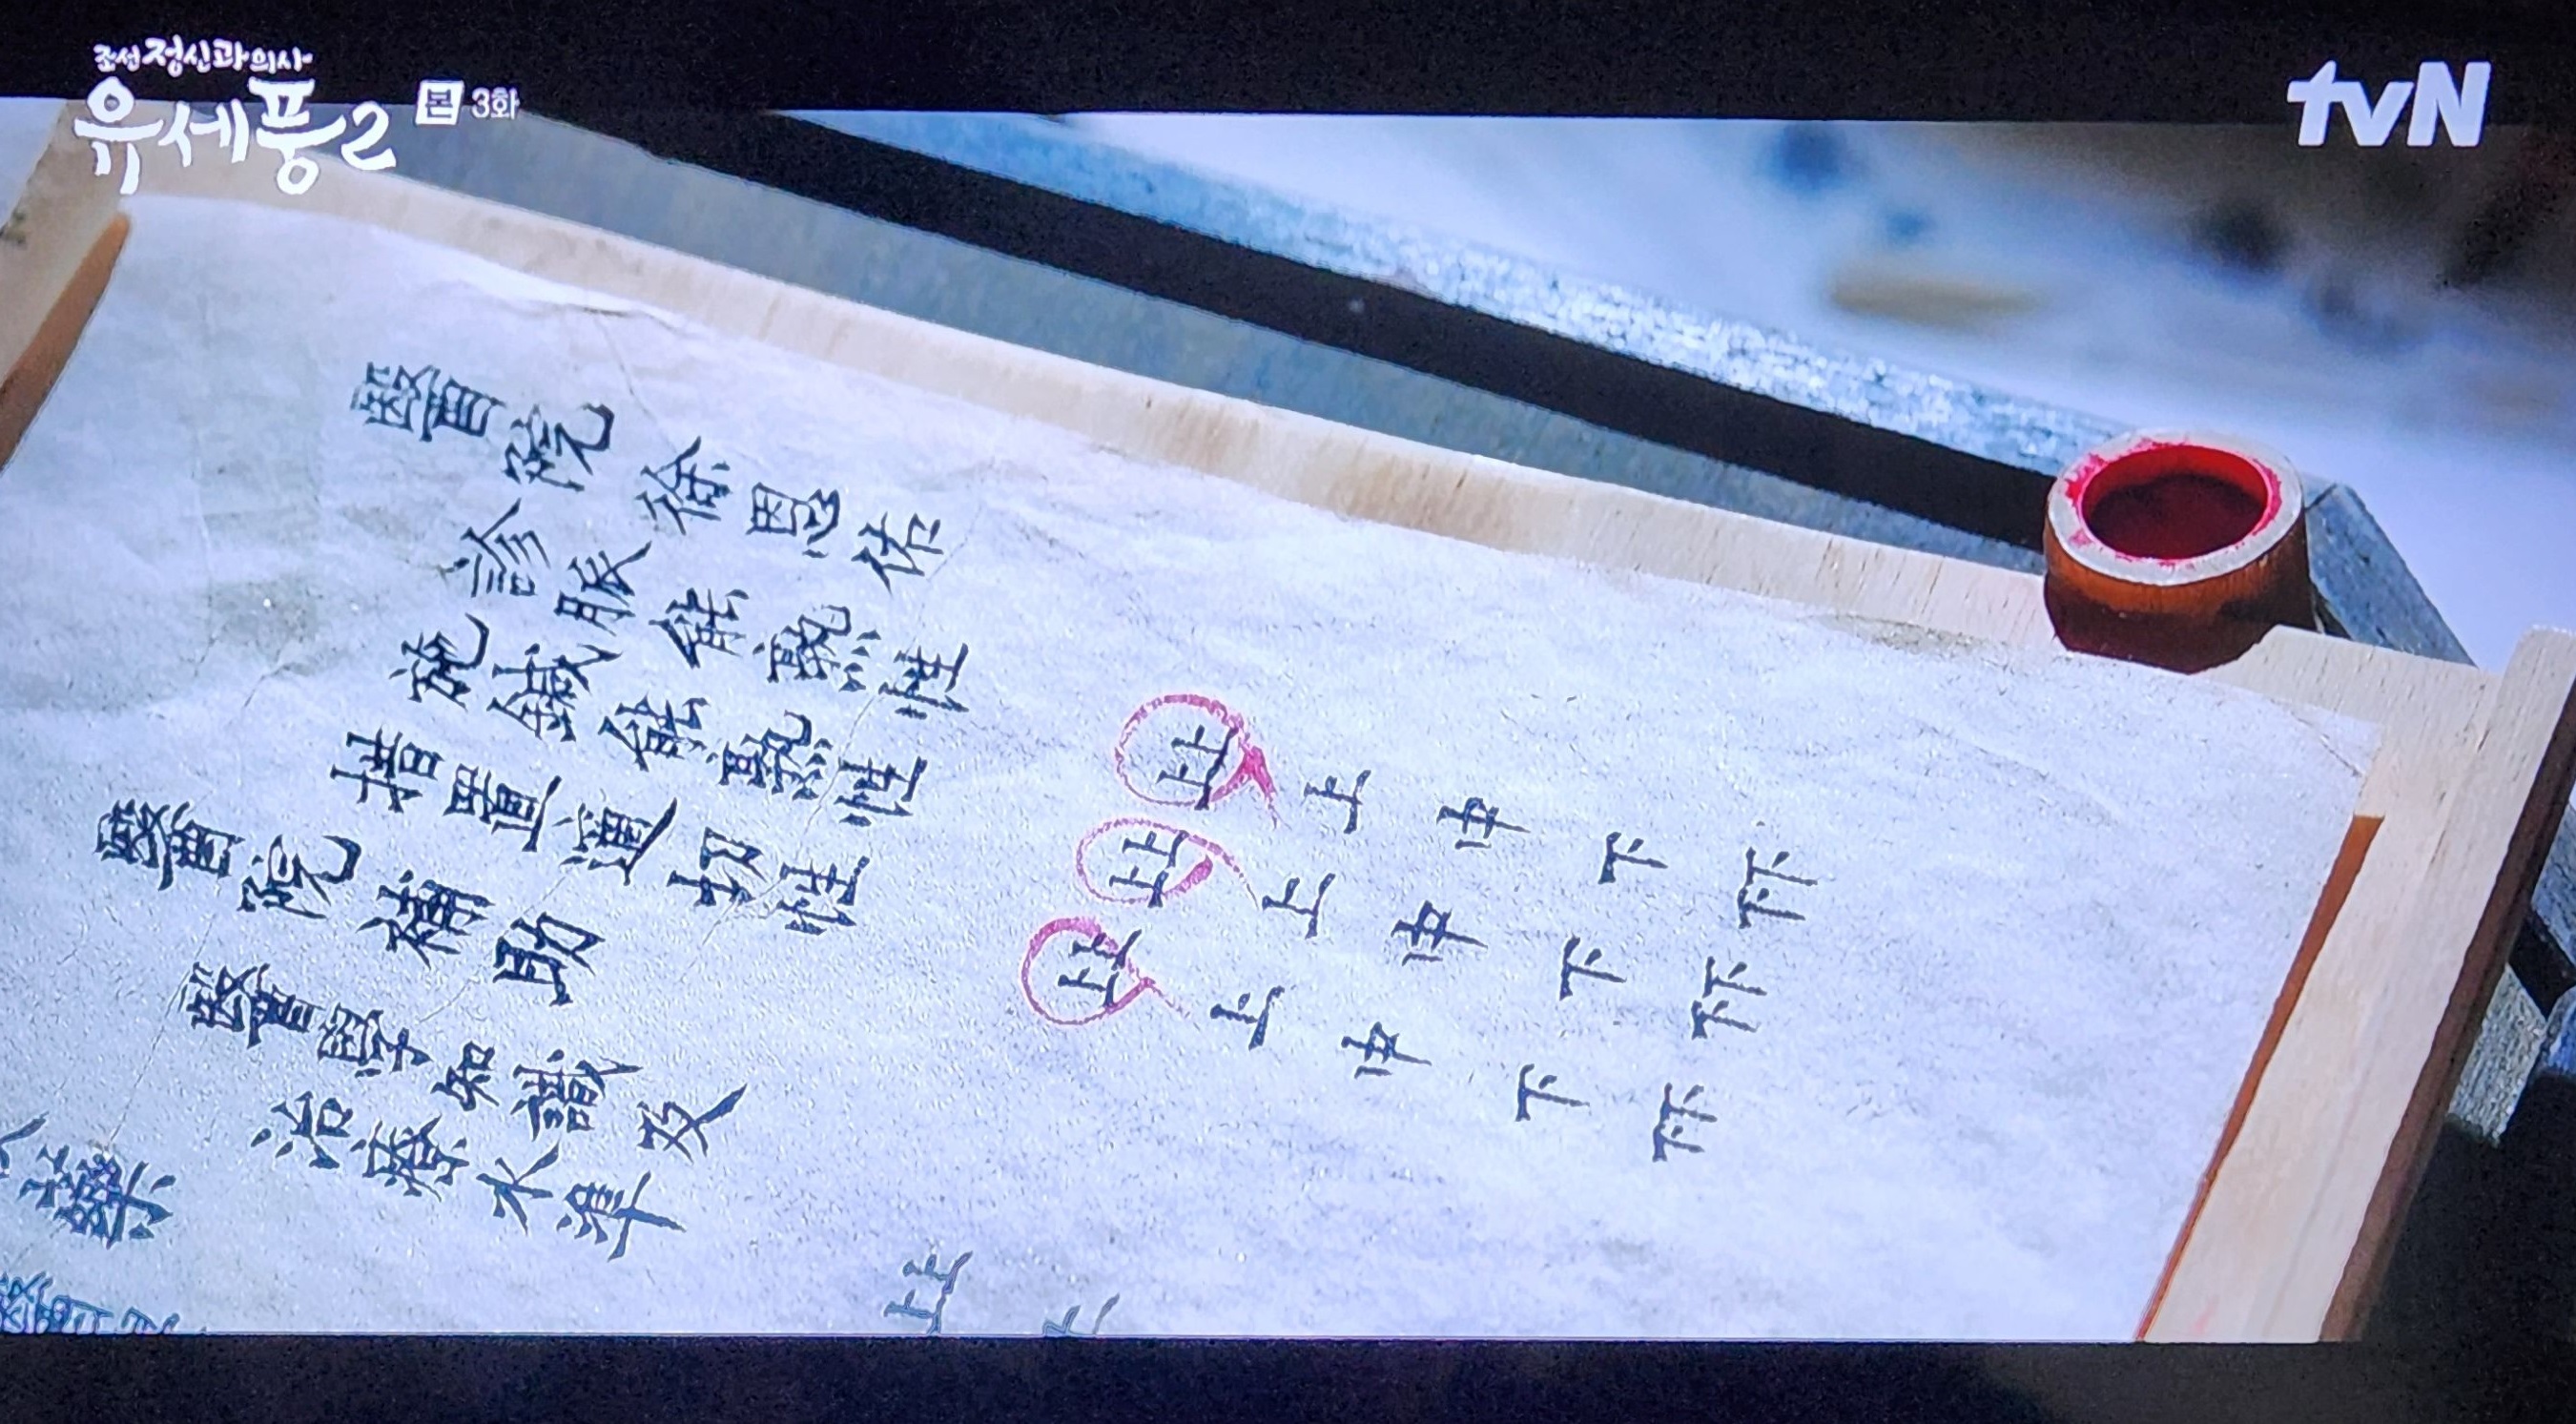 조선 정신과 의사
유세풍2
본 3화
tvN
醫院徐恩佑
診脈能熟性 上上 上 中 下 下下
施鍼能熟性 上上 上 中 下 下下
措置適切性 上上 上 中 下 下下
醫院補助
醫學知識及
治療水準 上上
藥